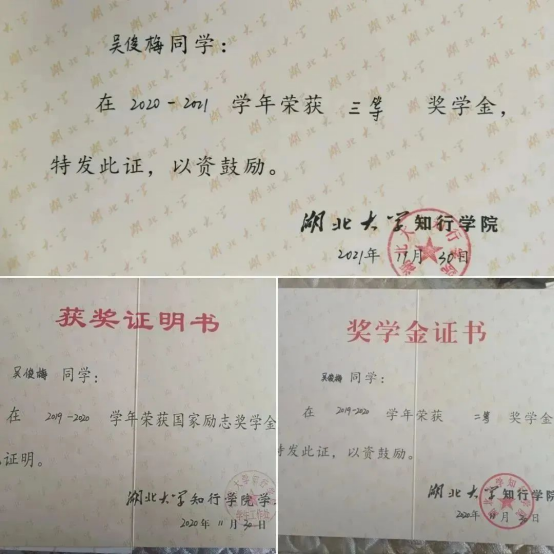 吴俊梅同学：
在 2020-2021 学年荣获 三等 奖学金，
特发此证，以资鼓励。
湖北大学知行学院
2021年 11月 30日
获奖证明书
吴俊梅 同学：
在 2019-2020 学年荣获国家励志奖学金
证明。
湖北大学知行学院学
2020年 11月 30日
奖学金证书
吴俊梅 同学：
在 2019-2020 学年荣获 二等 奖学金
特发此证，以资鼓励。
湖北大学知行学院
2020年 11月 30日